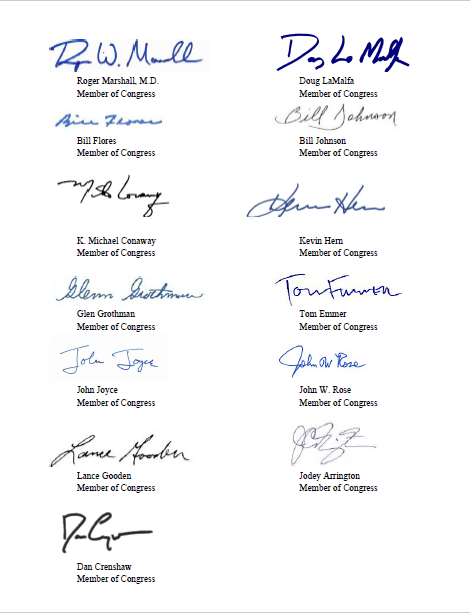 Roger W. Marshall
Roger Marshall, M.D.
Member of Congress
Doug La Malfa
Doug LaMalfa
Member of Congress
Bill Flores
Bill Flores
Member of Congress
Bill Johnson
Bill Johnson
Member of Congress
K. Michael Conaway
Member of Congress
Kevin Hern
Kevin Hern
Member of Congress
Glenn Grothman
Glen Grothman
Member of Congress
Tom Emmer
Tom Emmer
Member of Congress
John Joyce
John Joyce
Member of Congress
John W Rose
John W. Rose
Member of Congress
Lance Gooden
Lance Gooden
Member of Congress
Jodey Arrington
Member of Congress
Dan Crenshaw
Member of Congress